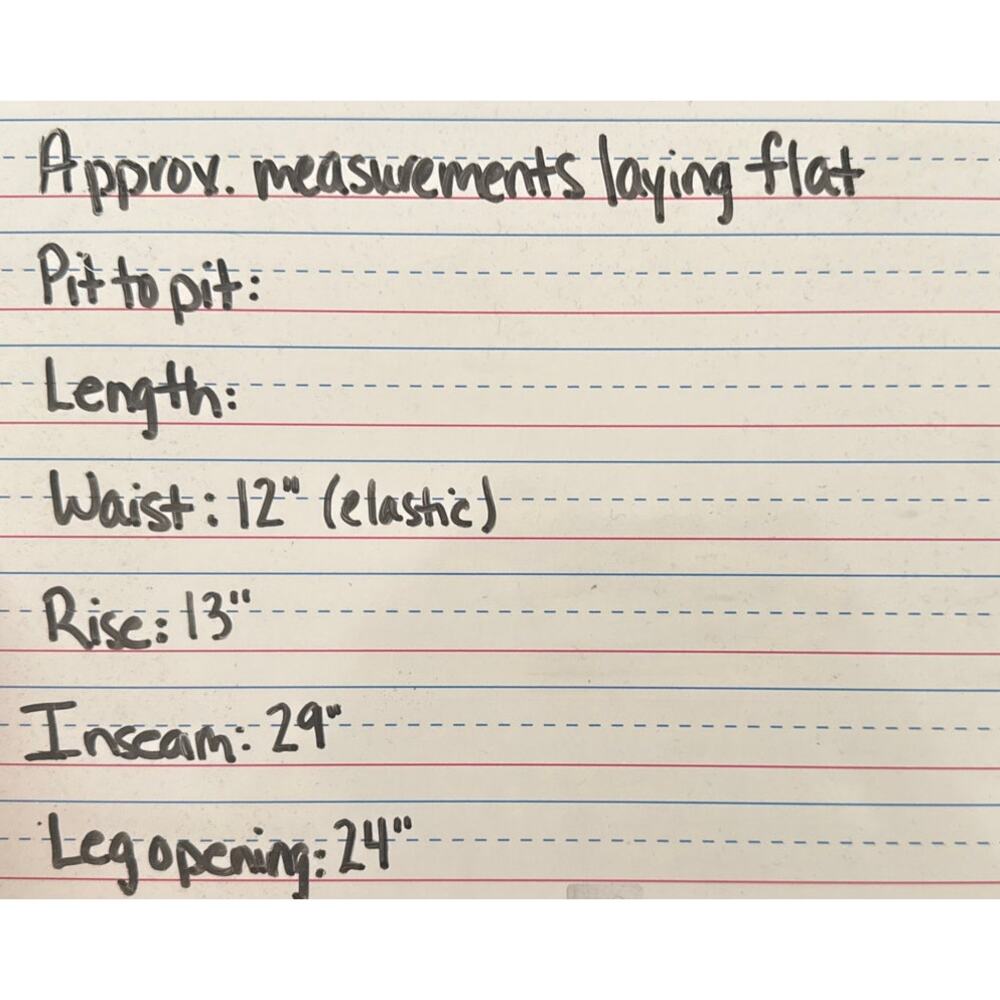 Approx. measurements laying flat
Pit to pit:
Length:
Waist: 12" (elastic)
Rise: 13"
Inseam: 29"
Leg opening: 24"